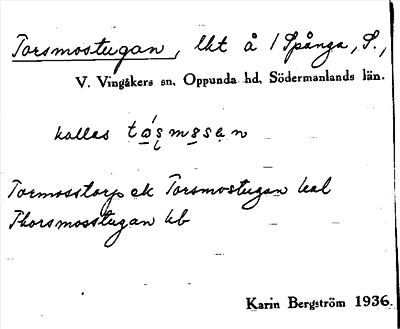 Torsmostugan, lht å 1 Spånga, S.,
V. Vingåkers sn, Oppunda hd, Södermanlands län.
kallas
Tormosstorp ek Torsmostugan kal
Thorsmosstugan kb
Karin Bergström 1936.